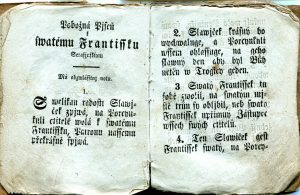 Pobožná Pjseň
k
swatému Frantissku
Seraffinskému
Má obzwlásstnj notu.
1.
S welikau radostj Slawj-
ček zpjwá, na Porcyn-
kuli ctitelé wolá k swatému
Frantissku, Patronu nassemu
překrásně zpjwá.
2. Slawjček krásný ho
wychwaluge, a Porcynkuli
wssem ohlassuge, na geho
slawný den aby byl Bůh
uctěn w Trogicy geden.
3 Swatý Frantissek tu
sobě zwolil, na swatým mj-
stě trům sy obljbil, neb swato
Frantissek upřimný Zástupce
wssech swých ctitelů.
4. Ten Slawjček gest
Frantissek swatý, na Porcyn-